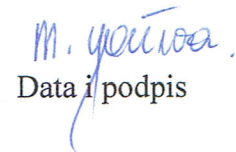 M.
Data i podpis